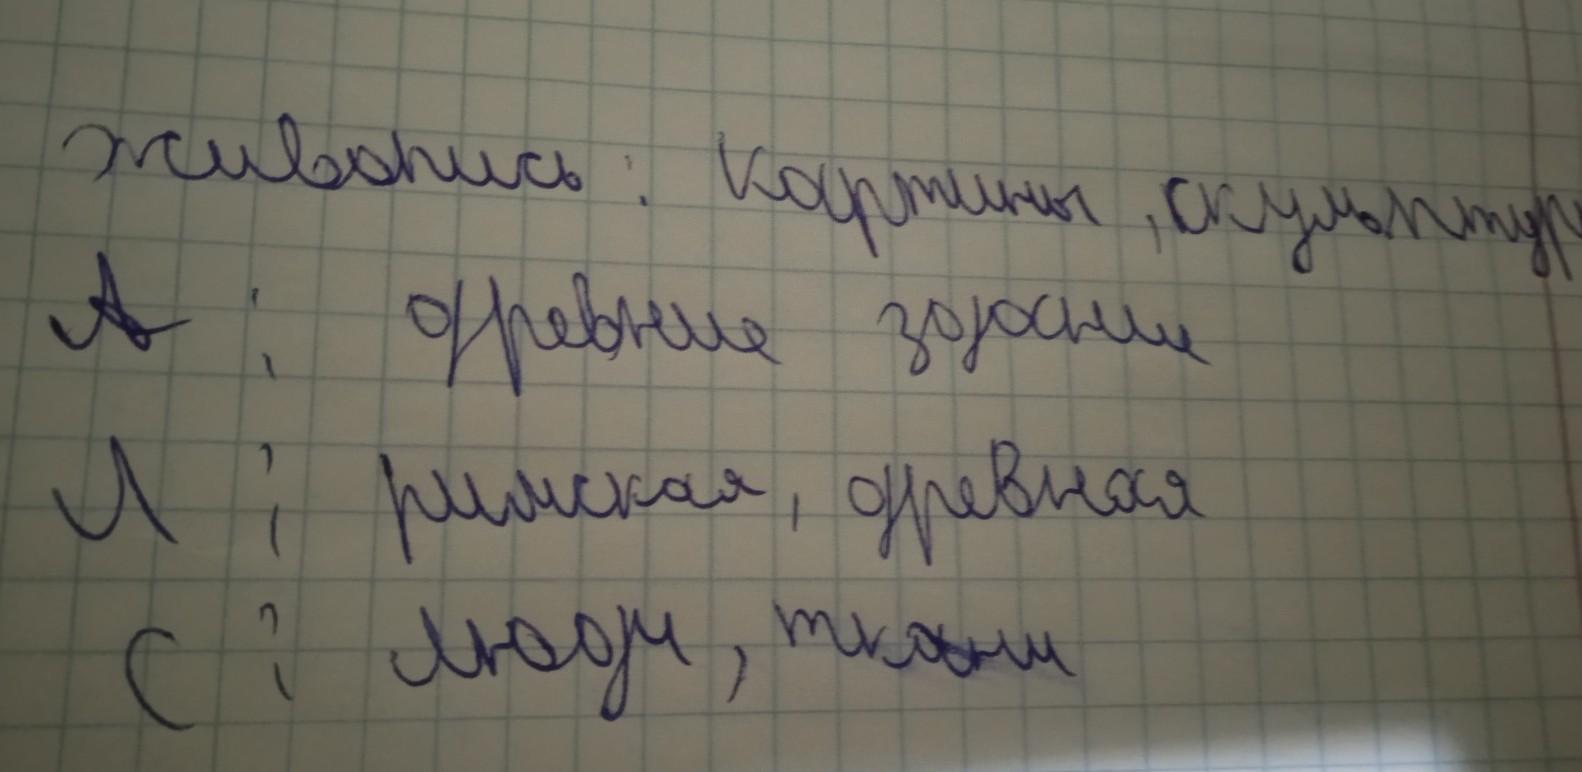 живопись: картины, скульптур
А: древние здание
Л: римская, древняя
С: люди, ткани